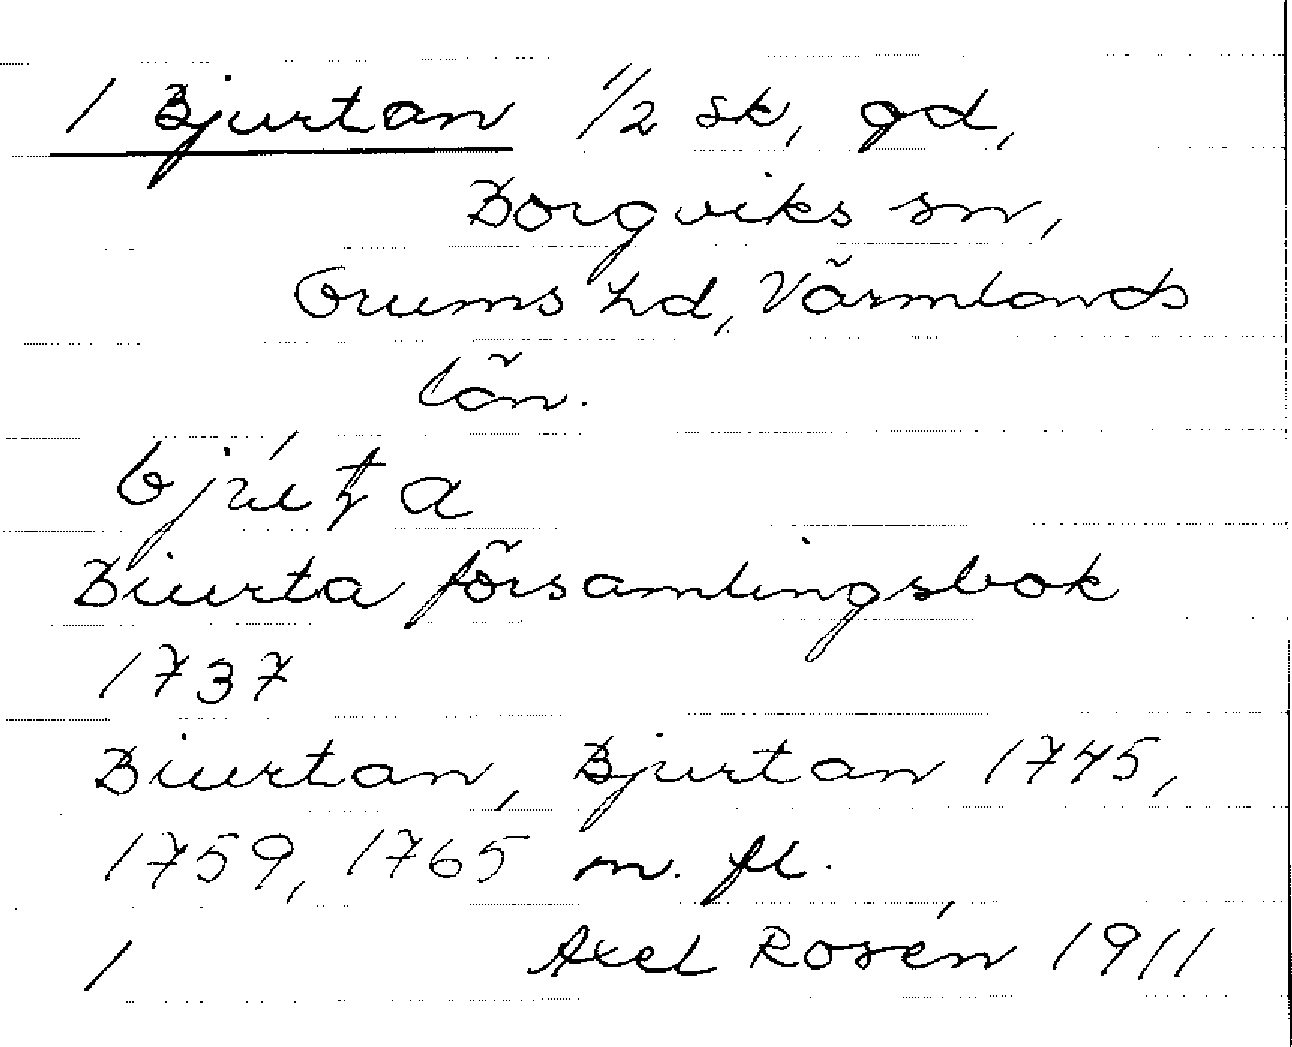 1 Bjurtan 1/2 sk, gd,
Borgviks sn,
Grums hd, Värmlands
län.
Biurta församlingsbok
1737
Biurtan, Bjurtan 1745,
1759, 1765 m. fl.
1 Axel Rosén 1911